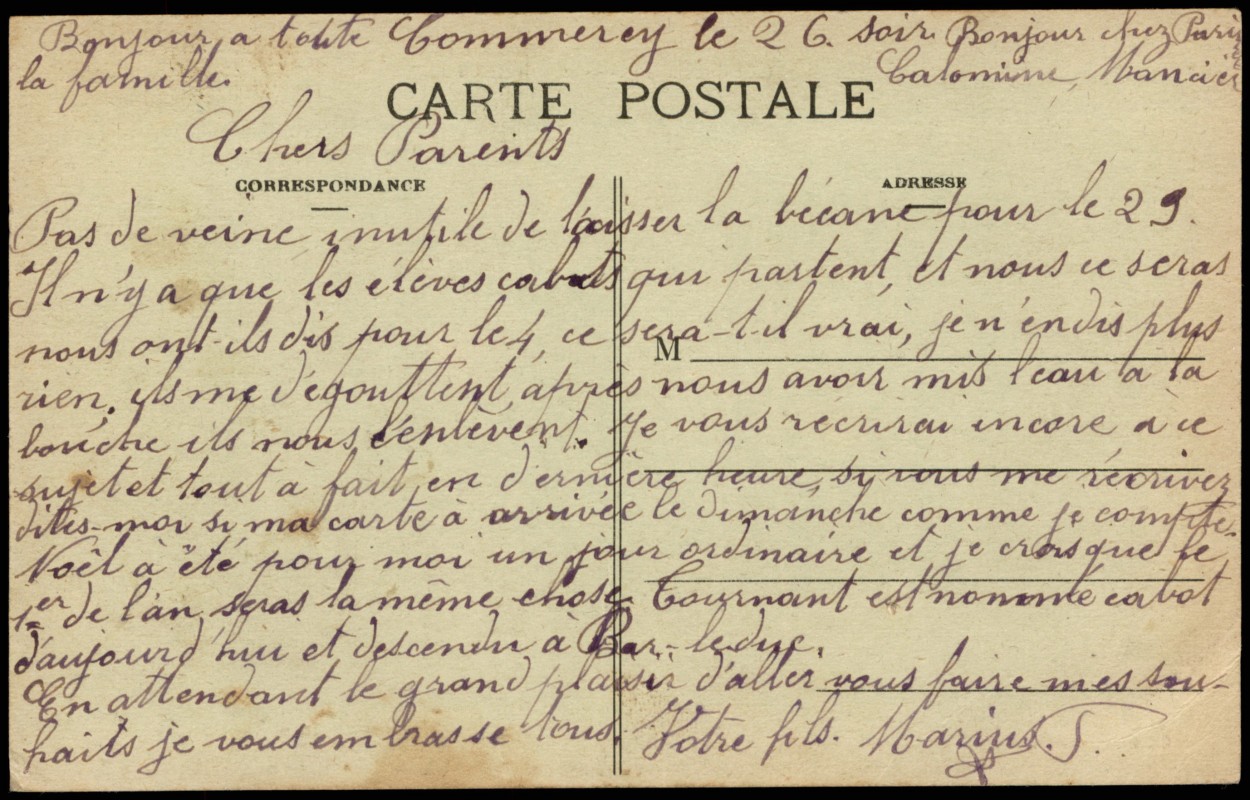 Bonjour a toute Commercy le 26. soir. Bonjour chez
la famille. Calomine, Mancier
CARTE POSTALE
Chers Parents
CORRESPONDANCE
ADRESSE
Pas de veine inutile de laisser la bécane pour le 29.
Il n'y a que les élèves cabots qui partent, et nous ce seras
nous ont-ils dis pour le 4, ce sera-t-il vrai, je n'en dis plus
M
rien. ils me dégouttent, après nous avoir mis l'eau à la
bouche ils nous l'enlèvent. Je vous récrirai incore à ce
sujet et tout à fait en dernière heure, si vous me récrivez
dites-moi si ma carte à arrivée le dimanche comme je compte.
Noël à été pour moi un jour ordinaire et je crois que le
1er de l'an seras la même chose. Tournant est nommé cabot
d'aujourd'hui et descendu à Bar-le duc.
En attendant le grand plaisir d'aller vous faire mes sou-
haits je vous embrasse tous. Votre fils. Marius. T.